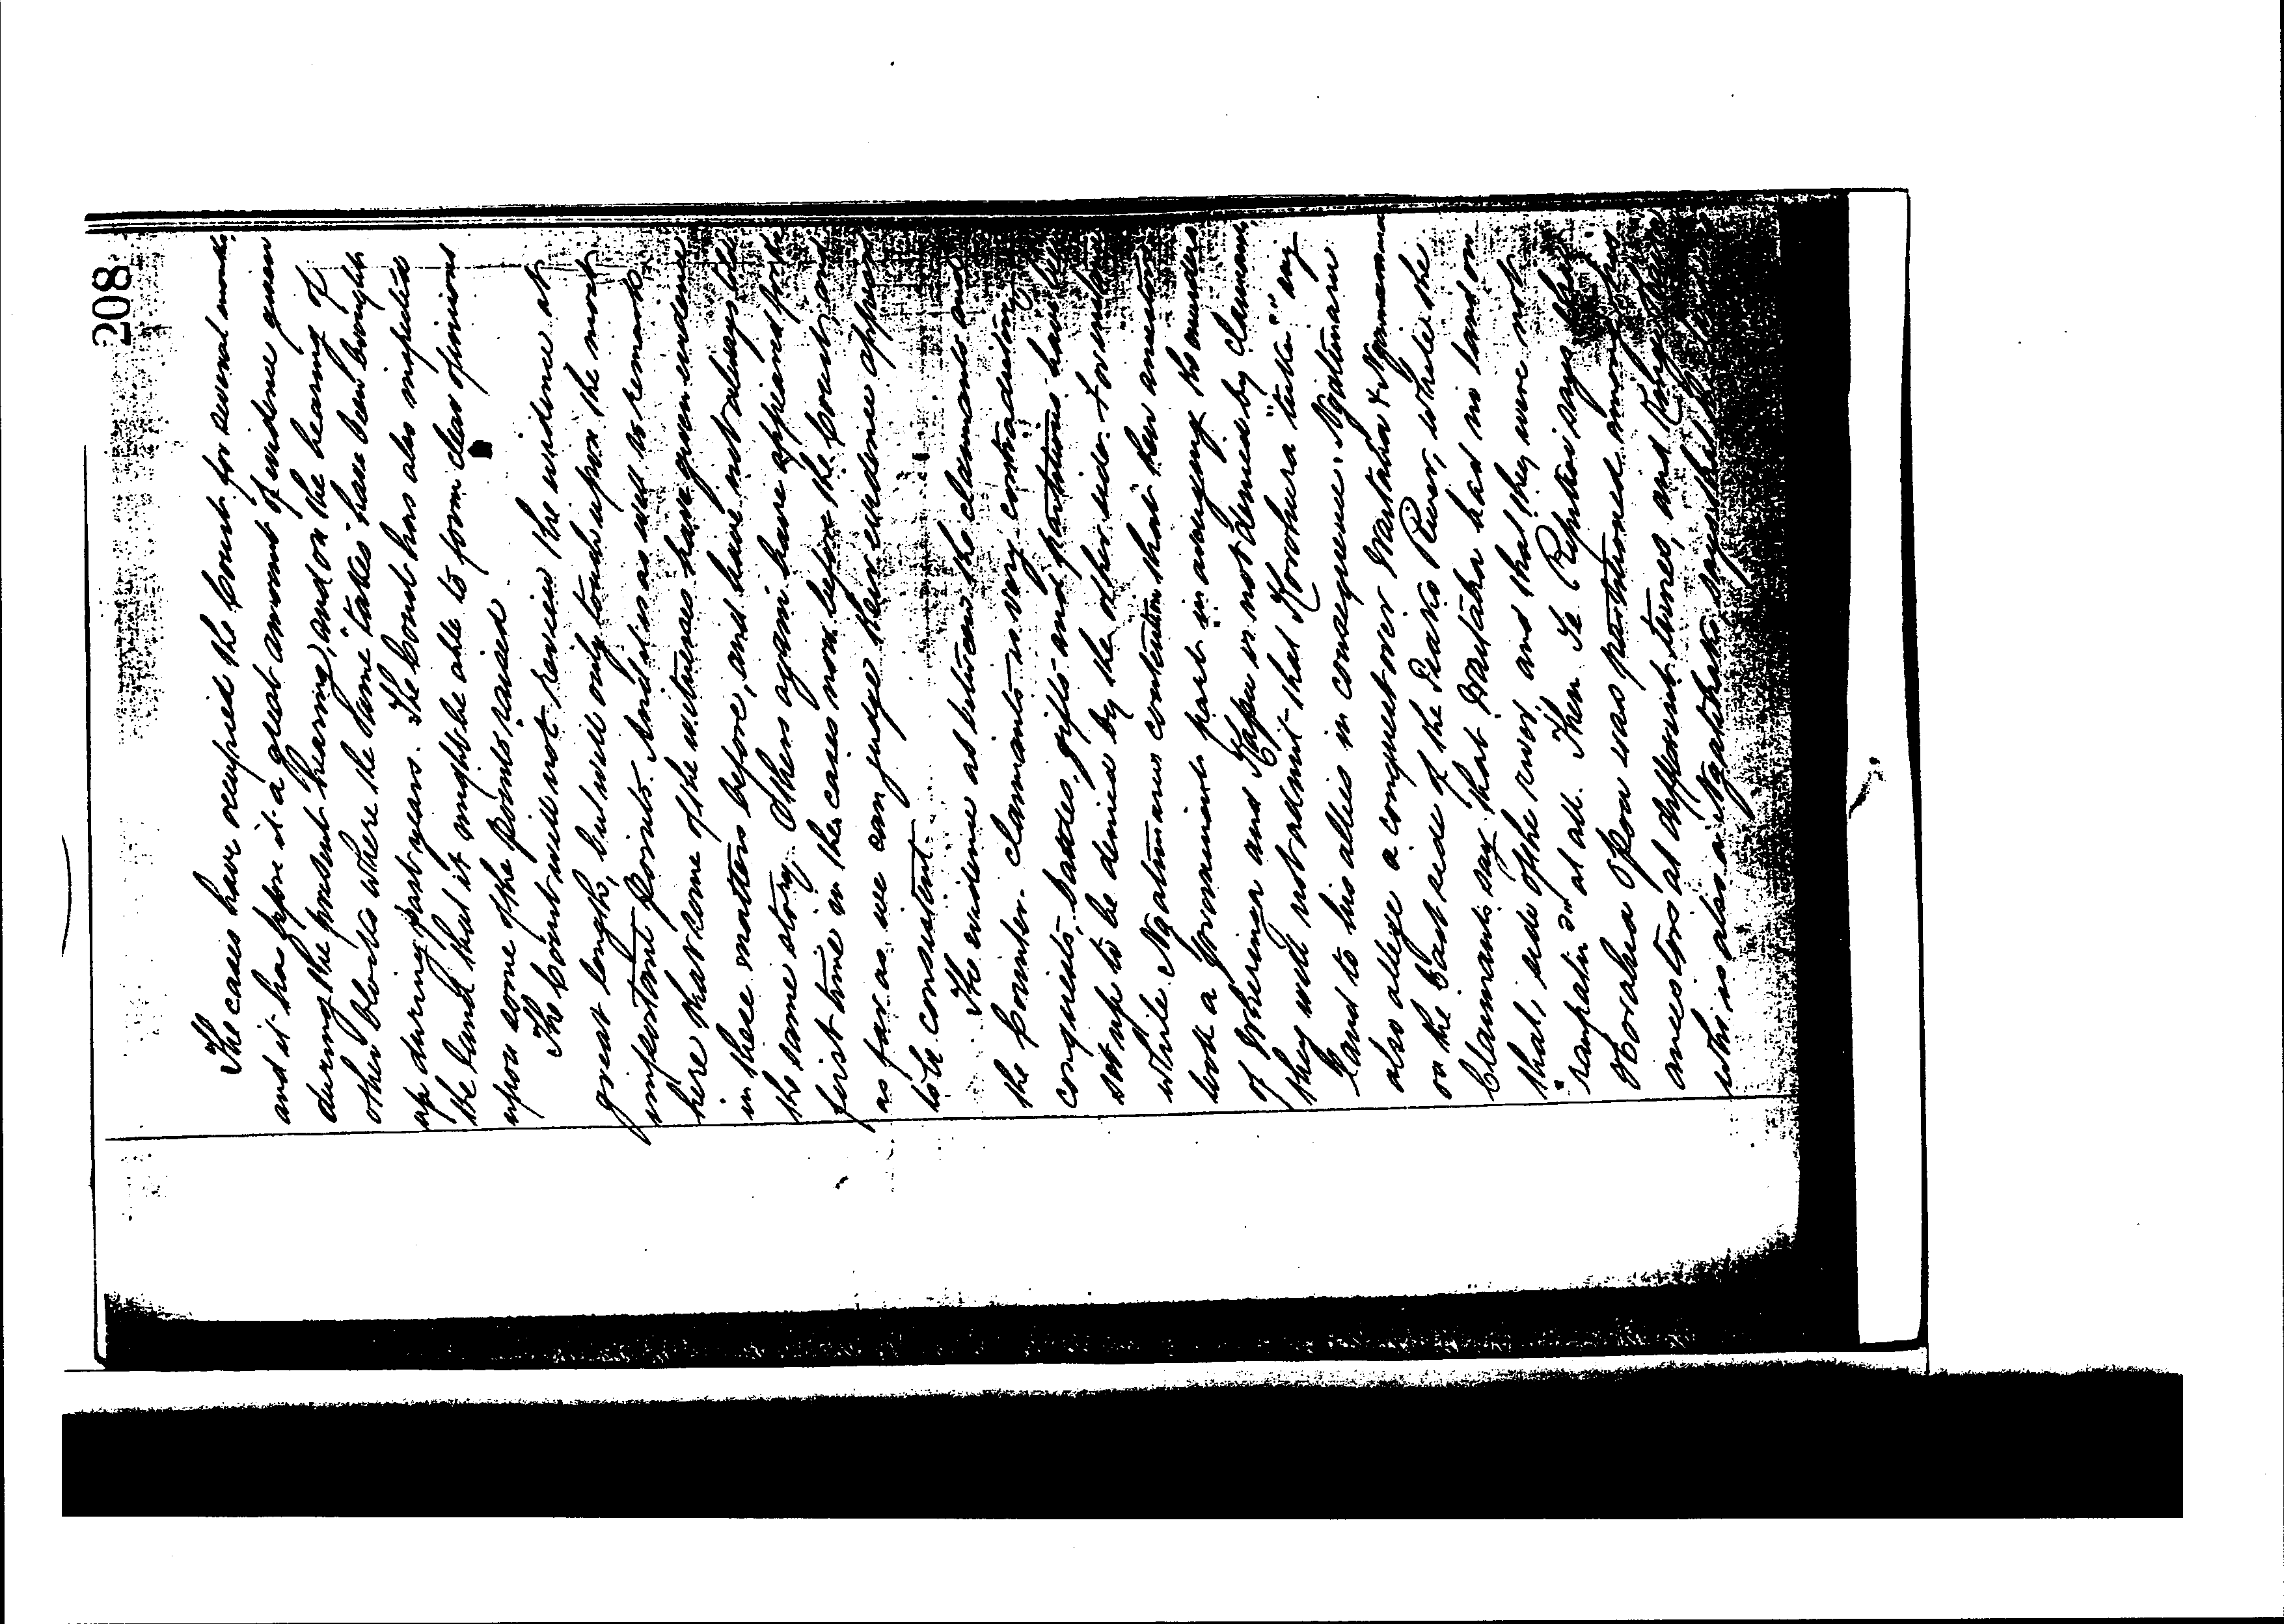 208
The cases have occupied the Court for several months,
and it has before it a great amount of evidence given
during the present hearing, and on the hearing of
other blocks where the same "takes" have been brought
up during past years. The Court has also inspected
the land that it might be able to form clear opinions
upon some of the points raised.
The Court will not review the evidence at
great length, but will only touch upon the most
important points. And it is as well to remark
here that some of the witnesses have given evidence
in these matters before, and have not always told
the same story. Others again have appeared for the
first time in the cases now before the Court, and
as far as we can judge their evidence appears
to be consistent.
The evidence as between the claimants and
the Counter-claimants is very contradictory
conquests, battles, gifts and partitions have been
set up to be denied by the other side. For instance
while Ngatimaru contention that their ancestors
took a prominent part in avenging the murders
of and Kapu is not denied by claimants,
they will not admit that Korohura "tuku" any
land to his allies in consequence. Ngatimaru
also allege a conquest over &
on the East side of the Piako River, while the
Claimants say that had no land on
that side of the river, and that they were not
"rangatira" at all. Then Te says that
was partitioned among his
ancestors at different times, and
who is also a says that